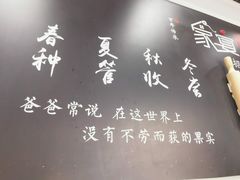 春种
夏管
秋收
冬尝
爸爸常说 在这世界上
没有不劳而获的果实